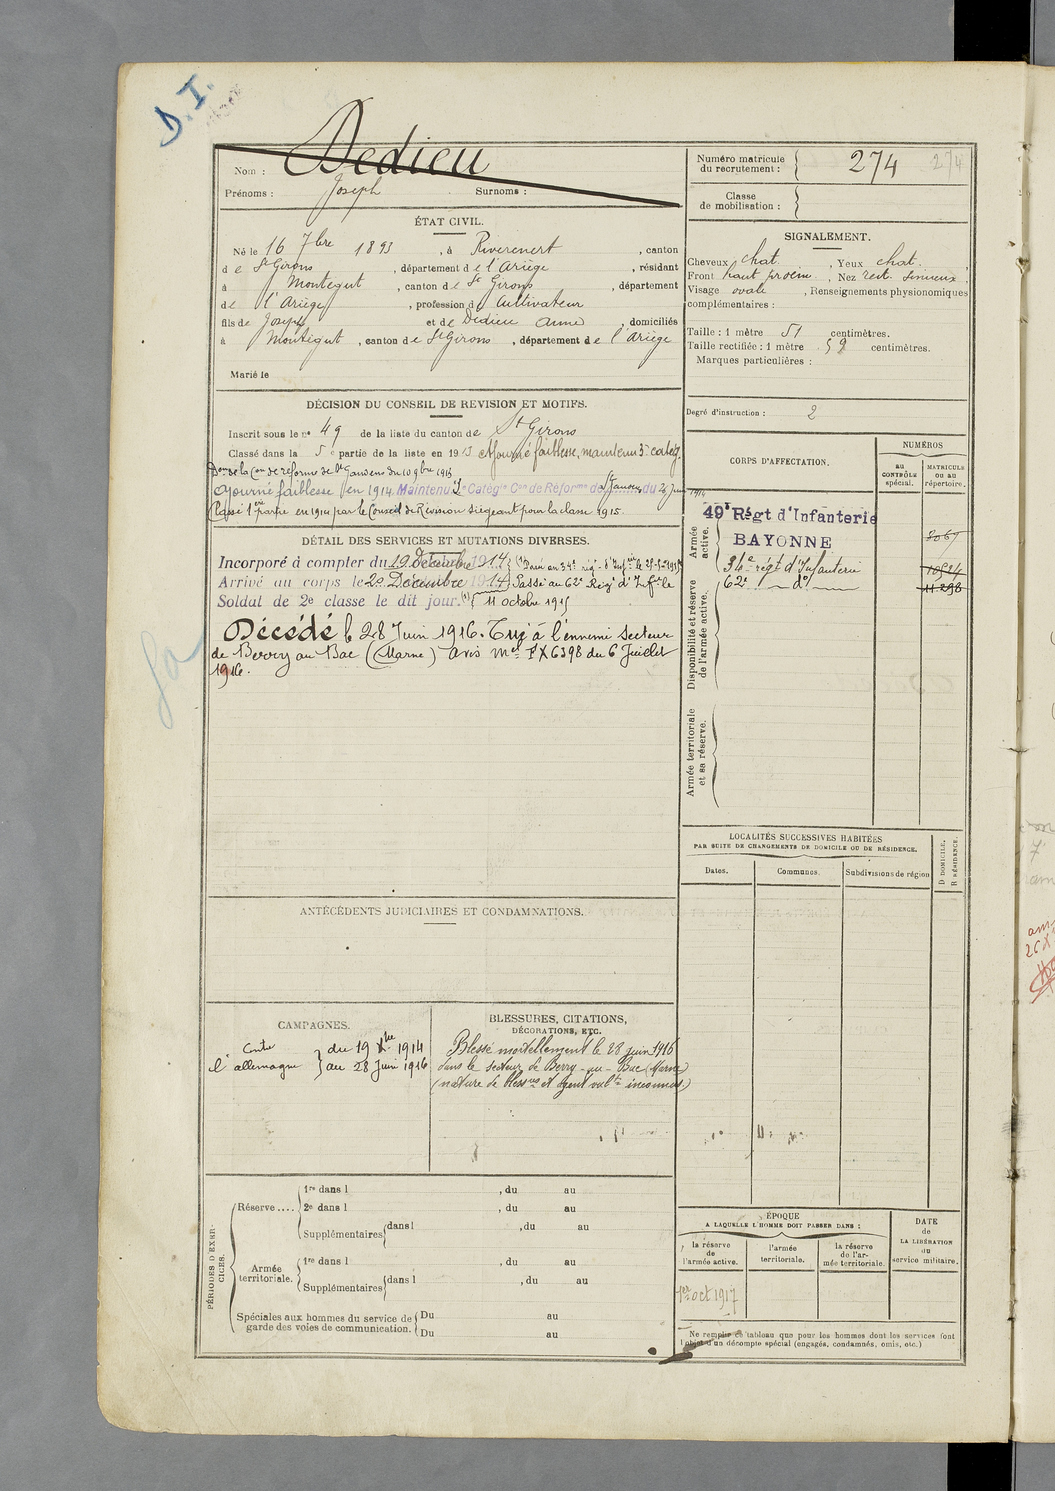 D. I.
Nom : Dedieu
Prénoms : Joseph Surnoms :
Numéro matricule du recrutement : 274 274
Classe de mobilisation :
ÉTAT CIVIL.
Né le 16 7bre 1893, à Rivérenert, canton
de St Girons, département de l'Ariège, résidant
à Montégut, canton de St Girons, département
de l'Ariège, profession de Cultivateur
fils de Joseph et de Dedieu Anne domiciliés
à Montégut, canton de St Girons, département de l'Ariège
Marié le
SIGNALEMENT.
Cheveux chat., Yeux chat.
Front haut proém., Nez rect. sinueux,
Visage ovale, Renseignements physionomiques
complémentaires :
Taille : 1 mètre 51 centimètres.
Taille rectifiée : 1 mètre 59 centimètres.
Marques particulières :
Degré d'instruction : 2
DÉCISION DU CONSEIL DE REVISION ET MOTIFS.
Inscrit sous le no 49 de la liste du canton de St Girons
Classé dans la 5e partie de la liste en 1913 Ajourné faiblesse, maintenu 3e catég.
Don de la Con de réforme de St Gaudens du 10 9bre 1913
Ajourné faiblesse en 1914. Maintenu 2e Catégie Con de Réforme de St Gaudens du 26 Juin 1914
Classé 1ère partie en 1914 par le Conseil de Révision siégeant pour la classe 1915.
DÉTAIL DES SERVICES ET MUTATIONS DIVERSES.
Incorporé à compter du 19 Décembre 1914 (1) Passé au 34e rég. d'Infrie le
Arrivé au corps le 20 Décembre 1914 Passé au 62e Régt d'Infie le
Soldat de 2e classe le dit jour. (1) 11 octobre 1915
Décédé le 28 Juin 1916. Tué à l'ennemi secteur
de Berry au Bac (Marne) Avis mel FX 6398 du 6 Juillet
1916.
CORPS D'AFFECTATION.
NUMÉROS
AU CONTRÔLE spécial.
MATRICULE OU AU RÉPERTOIRE.
Armée active.
49e Régt d'Infanterie
BAYONNE
8067
34e régt d'Infanterie
62e do
11298
Disponibilité et réserve de l'armée active.
Armée territoriale et sa réserve.
LOCALITÉS SUCCESSIVES HABITÉES
PAR SUITE DE CHANGEMENTS DE DOMICILE OU DE RÉSIDENCE.
Dates. Communes. Subdivisions de région
D DOMICILE. R RÉSIDENCE.
ANTÉCÉDENTS JUDICIAIRES ET CONDAMNATIONS.
CAMPAGNES.
Contre l'allemagne du 19 Xbre 1914
au 28 Juin 1916
BLESSURES, CITATIONS,
DÉCORATIONS, ETC.
Blessé mortellement le 28 juin 1916
dans le secteur de Berry-au-Bac (Marne)
(nature de blessures et agent vulnt inconnus)
PÉRIODES D'EXERCICES.
Réserve....
1re dans l , du au
2e dans l , du au
Supplémentaires dans l , du au
Armée territoriale.
1re dans l , du au
Supplémentaires dans l , du au
Spéciales aux hommes du service de garde des voies de communication.
Du au
Du au
ÉPOQUE
A LAQUELLE L'HOMME DOIT PASSER DANS :
la réserve de l'armée active.
l'armée territoriale.
la réserve de l'armée territoriale.
DATE de LA LIBÉRATION du service militaire.
1er oct 1917
Ne remplir ce tableau que pour les hommes dont les services font
l'objet d'un décompte spécial (engagés, condamnés, omis, etc.)